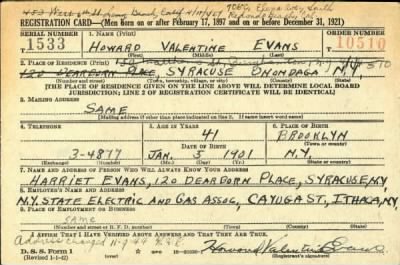 453 West 9th St. Long Beach, Calif 4/17/47 708 Elena Ave South
Redondo Beach, Cal
REGISTRATION CARD—(Men born on or after February 17, 1897 and on or before December 31, 1921)
SERIAL NUMBER 1. NAME (Print) ORDER NUMBER
1533 HOWARD VALENTINE EVANS 10510
(First) (Middle) (Last)
2. PLACE OF RESIDENCE (Print)
120 DEARBORN PLACE SYRACUSE ONONDAGA N.Y.
(Number and street) (Town, township, village, or city) (County) (State)
[THE PLACE OF RESIDENCE GIVEN ON THE LINE ABOVE WILL DETERMINE LOCAL BOARD
JURISDICTION; LINE 2 OF REGISTRATION CERTIFICATE WILL BE IDENTICAL]
3. MAILING ADDRESS
SAME
(Mailing address if other than place indicated on line 2. If same insert word same)
4. TELEPHONE 5. AGE IN YEARS 6. PLACE OF BIRTH
41 BROOKLYN
DATE OF BIRTH (Town or county)
3-4877 JAN. 5 1901 N.Y.
(Exchange) (Number) (Mo.) (Day) (Yr.) (State or country)
7. NAME AND ADDRESS OF PERSON WHO WILL ALWAYS KNOW YOUR ADDRESS
HARRIET EVANS, 120 DEARBORN PLACE, SYRACUSE, N.Y.
8. EMPLOYER'S NAME AND ADDRESS
N.Y. STATE ELECTRIC AND GAS ASSOC, CAYUGA ST., ITHACA, N.Y.
9. PLACE OF EMPLOYMENT OR BUSINESS
SAME
(Number and street or R. F. D. number) (Town) (County) (State)
I AFFIRM THAT I HAVE VERIFIED ABOVE ANSWERS AND THAT THEY ARE TRUE.
Address changed
D. S. S. Form 1
(Revised 1-1-42) Howard Valentine Evans